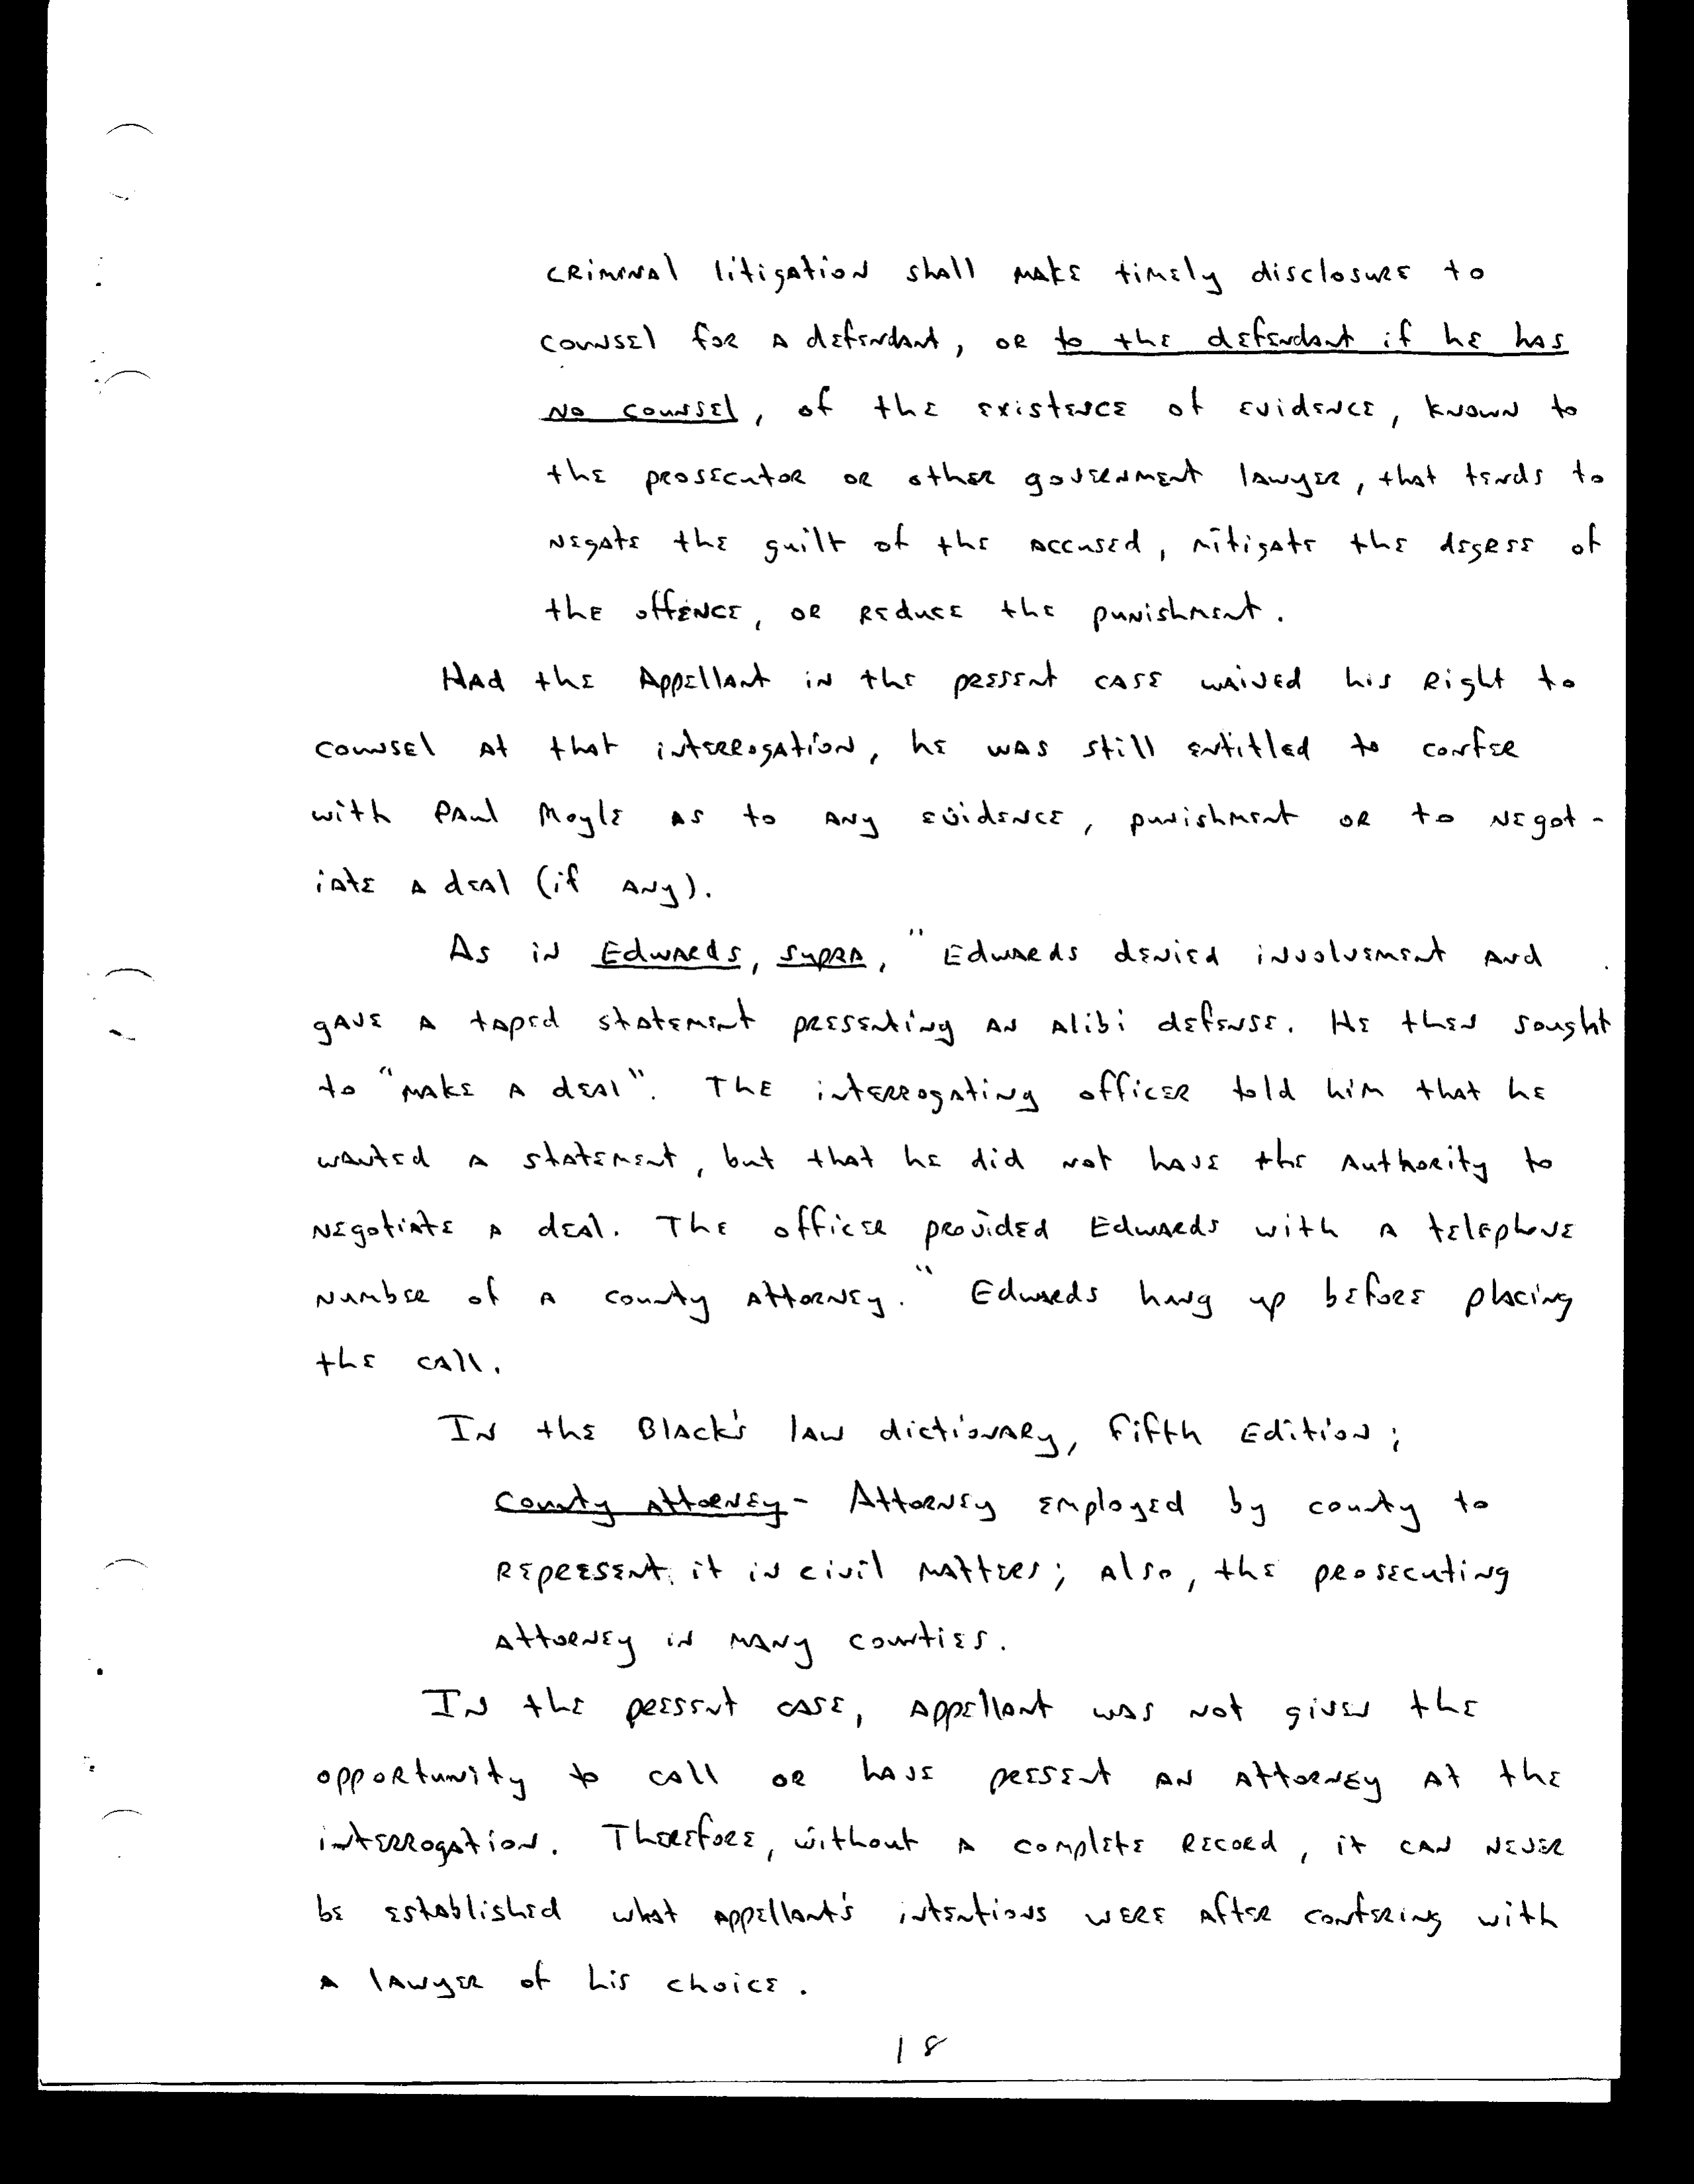 criminal litigation shall make timely disclosure to
counsel for a defendant, or to the defendant if he has
no counsel, of the existence of evidence, known to
the prosecutor or other government lawyer, that tends to
negate the guilt of the accused, mitigate the degree of
the offence, or reduce the punishment.
Had the Appellant in the present case waived his right to
counsel at that interrogation, he was still entitled to confer
with Paul Moyle as to any evidence, punishment or to negot-
iate a deal (if any).
As in Edwards, supra, "Edwards denied involvement and
gave a taped statement presenting an alibi defense. He then sought
to "make a deal". The interrogating officer told him that he
wanted a statement, but that he did not have the authority to
negotiate a deal. The officer provided Edwards with a telephone
number of a county attorney." Edwards hung up before placing
the call.
In the Black's law dictionary, Fifth Edition;
County attorney - Attorney employed by county to
represent it in civil matters; also, the prosecuting
attorney in many counties.
In the present case, appellant was not given the
opportunity to call or have present an attorney at the
interrogation. Therefore, without a complete record, it can never
be established what appellant's intentions were after confering with
a lawyer of his choice.
18